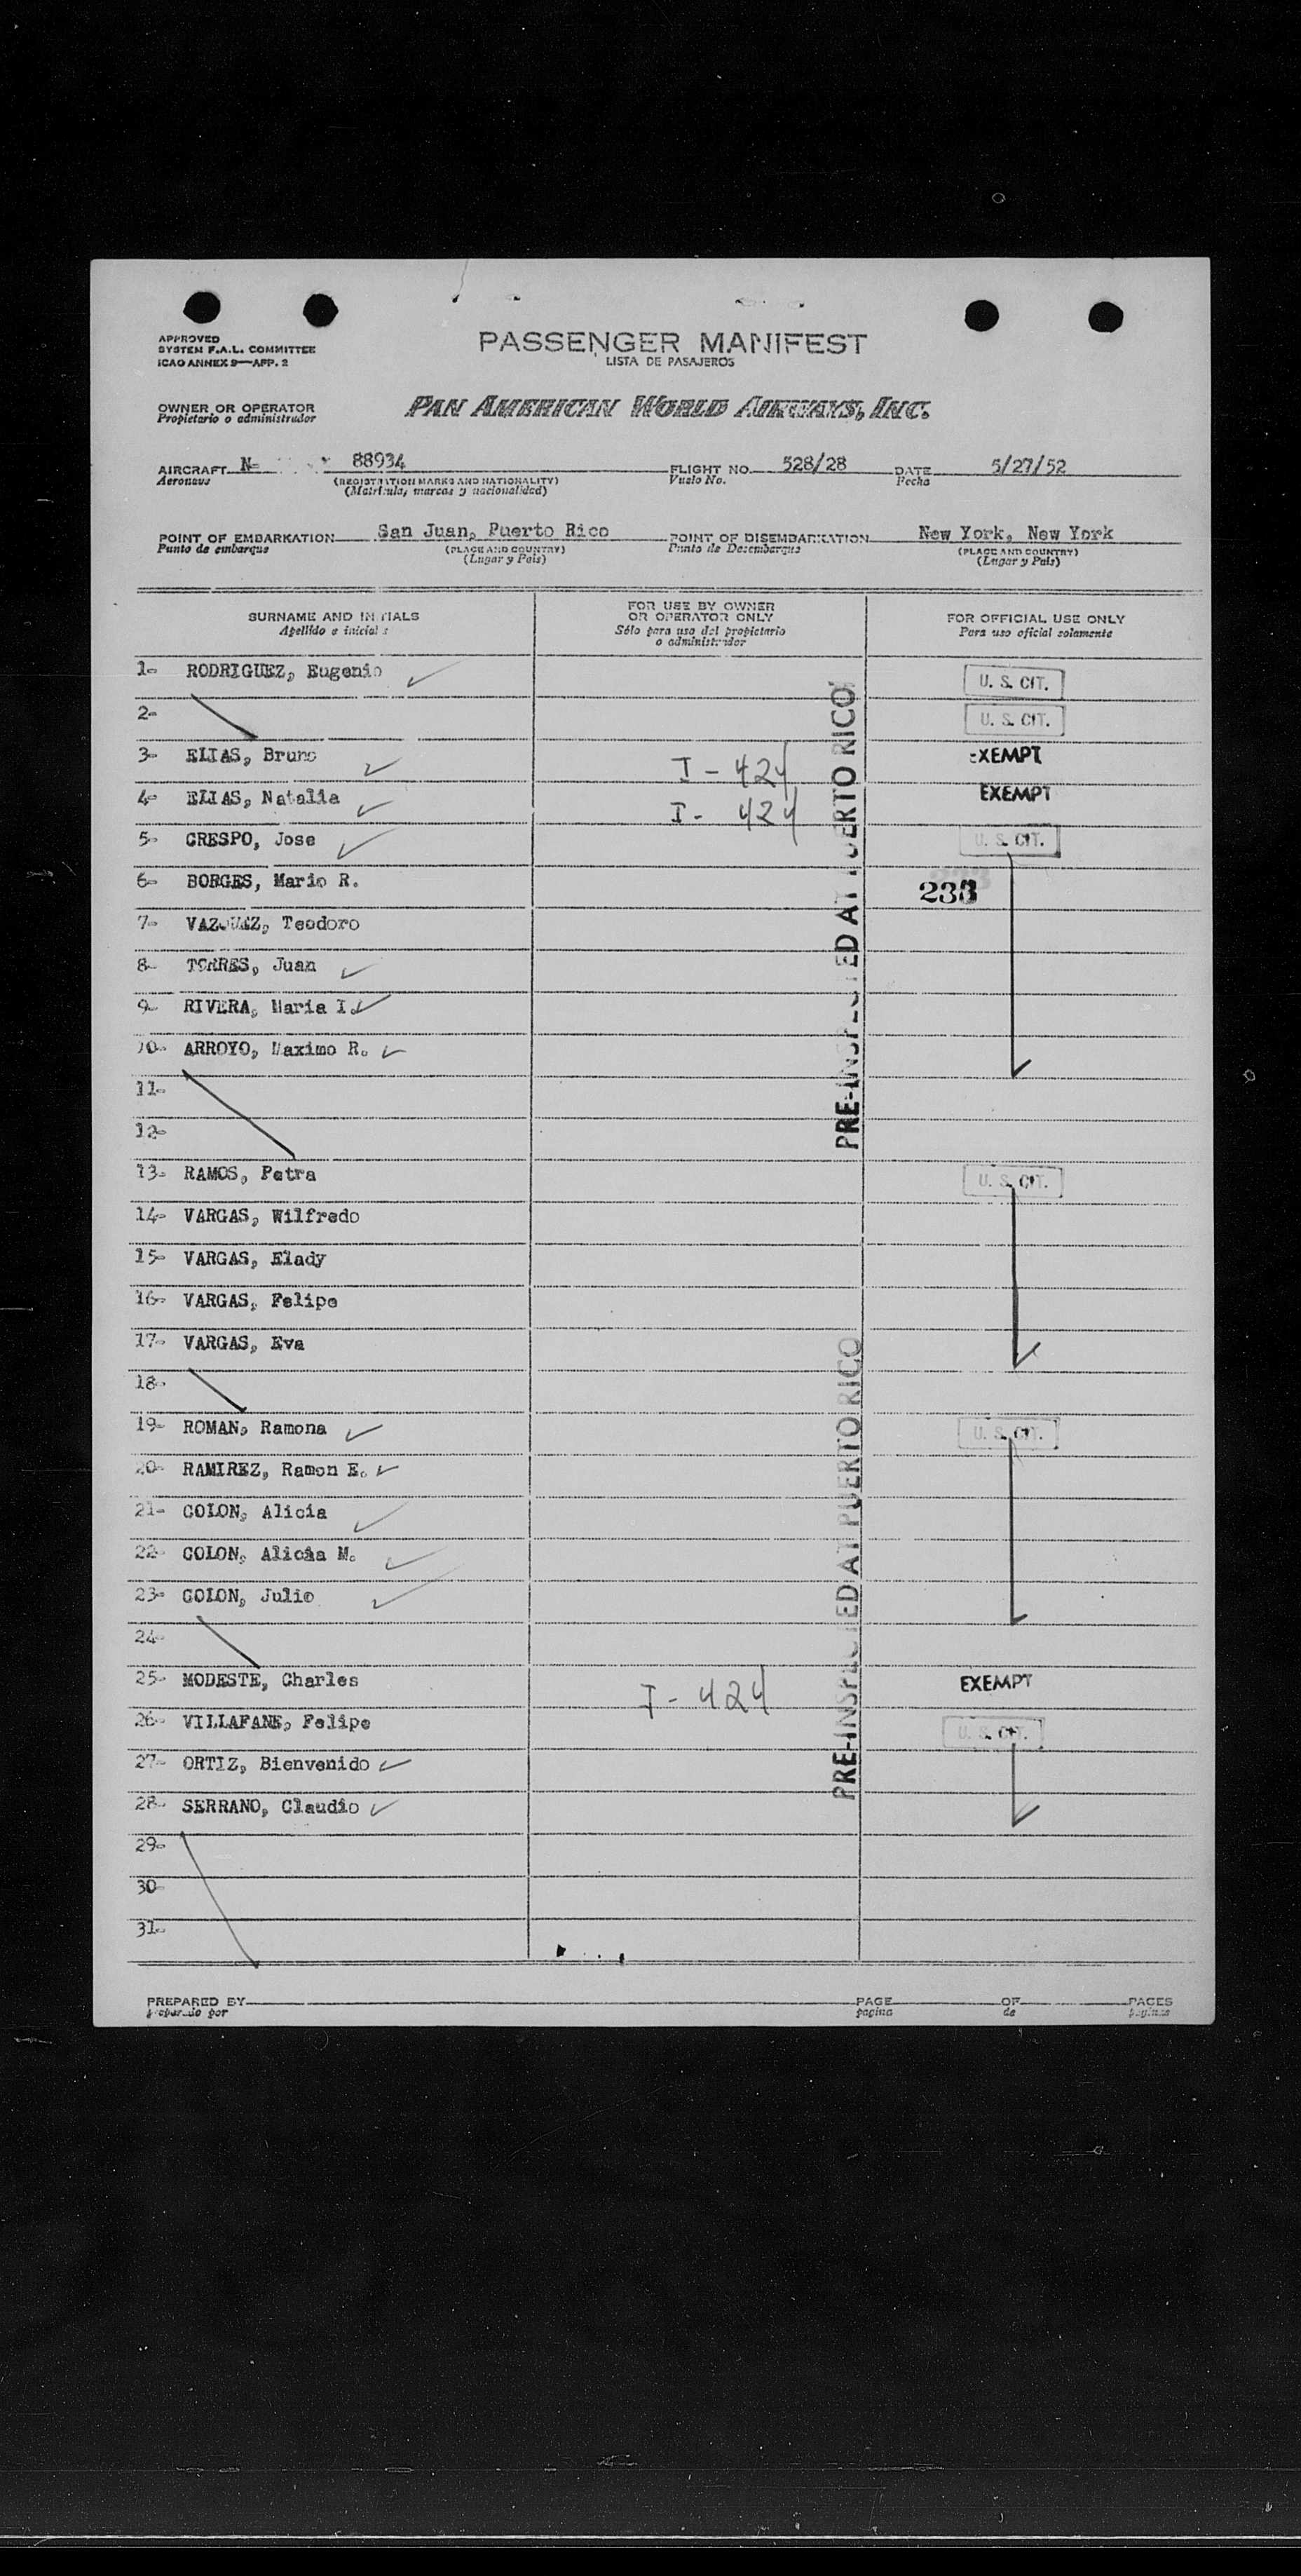 APPROVED
SYSTEM F.A.L. COMMITTEE
ICAO ANNEX 9—APP. 2
PASSENGER MANIFEST
LISTA DE PASAJEROS
OWNER OR OPERATOR
Propietario o administrador
PAN AMERICAN WORLD AIRWAYS, INC.
AIRCRAFT N- 88934 FLIGHT NO. 528/28 DATE 5/27/52
Aeronave (REGISTRATION MARKS AND NATIONALITY) Vuelo No. Fecha
(Matrícula, marcas y nacionalidad)
POINT OF EMBARKATION San Juan, Puerto Rico POINT OF DISEMBARKATION New York, New York
Punto de embarque (PLACE AND COUNTRY) Punto de Desembarque (PLACE AND COUNTRY)
(Lugar y País) (Lugar y País)
SURNAME AND INITIALS
Apellido e iniciales
FOR USE BY OWNER
OR OPERATOR ONLY
Sólo para uso del propietario
o administrador
FOR OFFICIAL USE ONLY
Para uso oficial solamente
1- RODRIGUEZ, Eugenio U. S. CIT.
2- U. S. CIT.
3- ELIAS, Bruno I-424 EXEMPT
4- ELIAS, Natalia I-424 EXEMPT
5- CRESPO, Jose U. S. CIT.
6- BORGES, Mario R. 233
7- Teodoro
8- TORRES, Juan
9- RIVERA, Maria I.
10- ARROYO, Maximo R.
11-
12-
PRE-INSPECTED AT PUERTO RICO
13- RAMOS, Petra U. S. CIT.
14- VARGAS, Wilfredo
15- VARGAS, Elady
16- VARGAS, Felipe
17- VARGAS, Eva
18-
19- ROMAN, Ramona U. S. CIT.
20- RAMIREZ, Ramon E.
21- COLON, Alicia
22- COLON, Alicia M.
23- COLON, Julio
24-
25- MODESTE, Charles I-424 EXEMPT
26- VILLAFANE, Felipe U. S. CIT.
27- ORTIZ, Bienvenido
28- SERRANO, Claudio
PRE-INSPECTED AT PUERTO RICO
29-
30-
31-
PREPARED BY PAGE OF PAGES
preparado por página de páginas